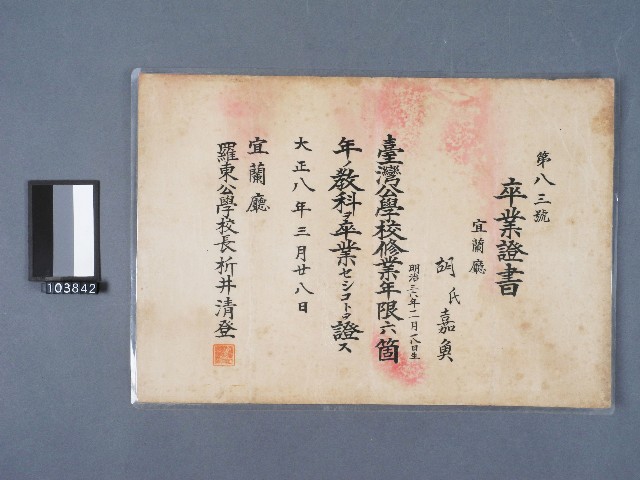 第八三號
卒業證書
宜蘭廳
胡氏嘉奐
明治三六年二月一八日生
臺灣公學校修業年限六箇
年ノ教科ヲ卒業セシコトヲ證ス
大正八年三月廿八日
宜蘭廳
羅東公學校長析井清登
103842